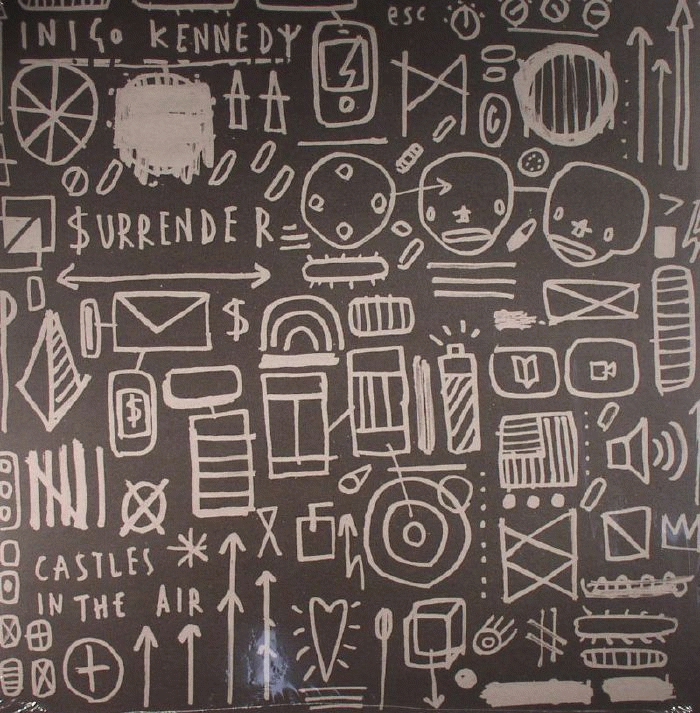 esc
INIGO KENNEDY
$URRENDER
$
$
CASTLES
IN THE AIR